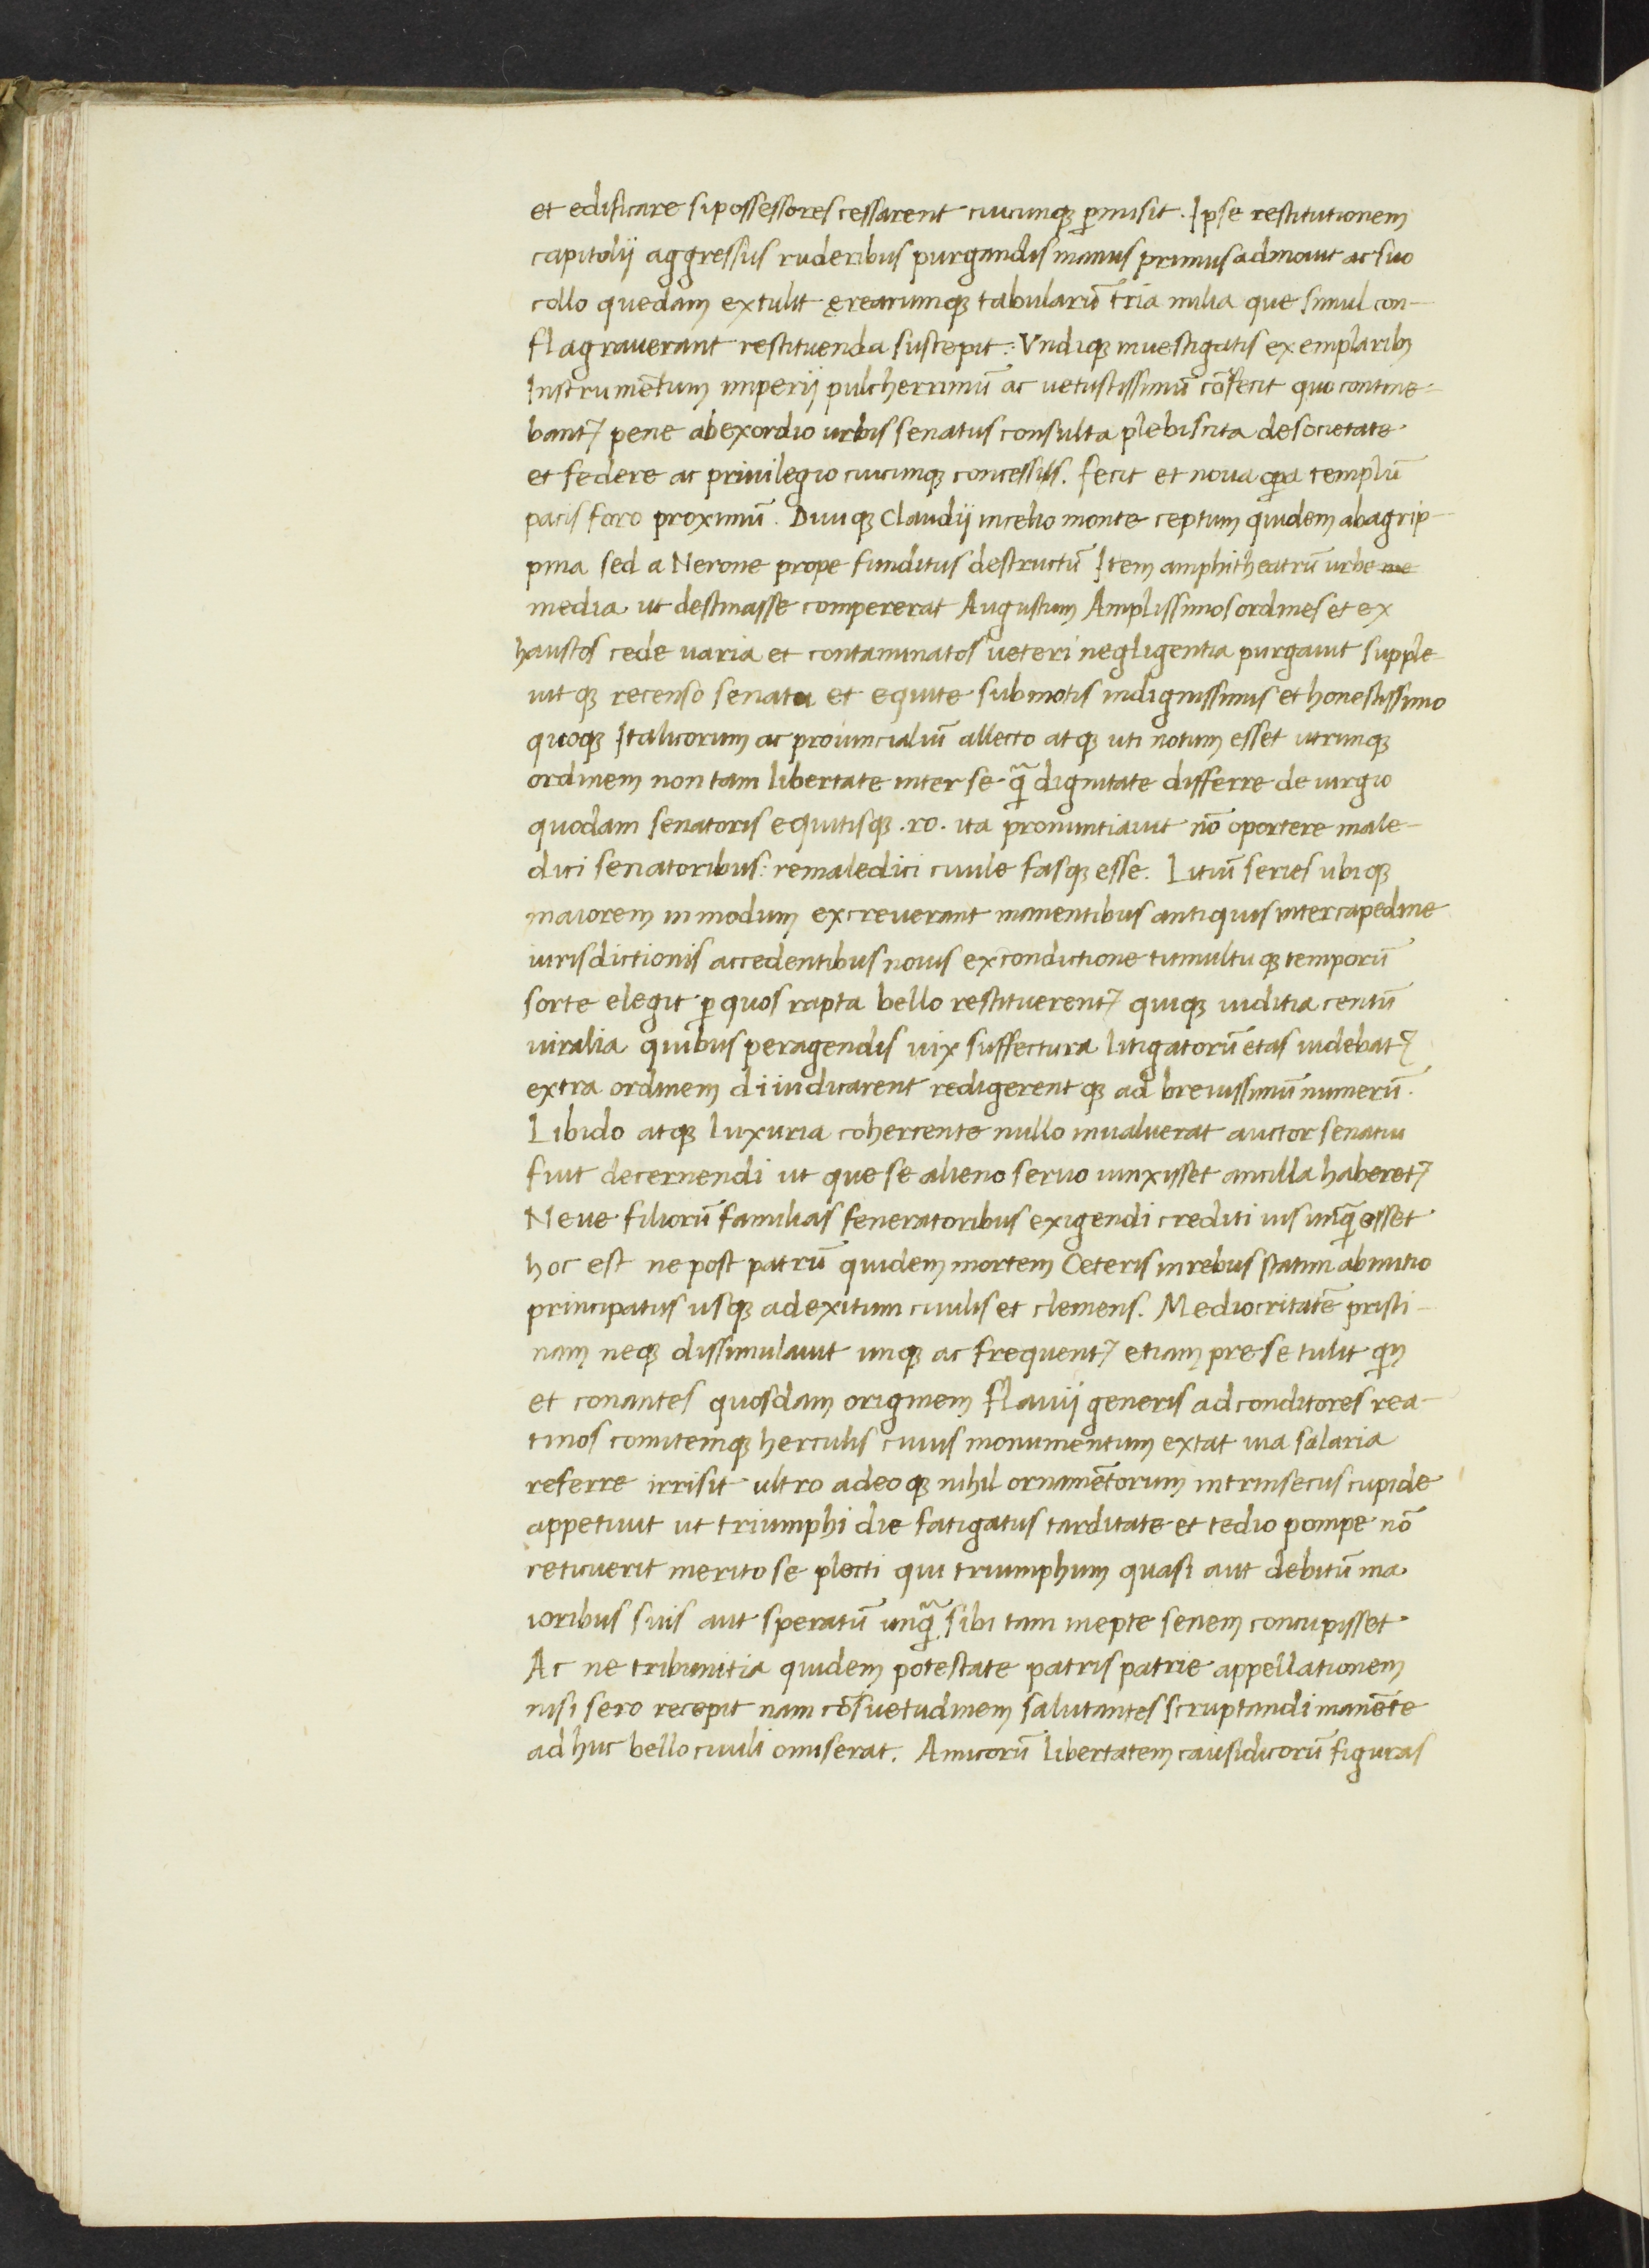 et edificare si possessores cessarent cuicunqꝫ ꝑmisit. Ipse restitutionem
capitolij aggressus ruderibus purgandis manus primus admouit ac suo
collo quedam extulit ęrearumqꝫ tabularū tria milia que simul con-
flagrauerant restituenda suscepit: Vndiqꝫ inuestigatis exemplaribꝫ
Instrumētum imperij pulcherrimū ac uetustissimū cōfecit quo contine-
bantʳ pene ab exordio urbis senatus consulta plebiscita de societate
et federe ac priuilegio cuicunqꝫ concessis. fecit et noua oꝑa templū
pacis foro proximū. Diuiqꝫ Claudij in celio monte ceptum quidem ab agrip-
pina sed a Nerone prope funditus destructū Item amphitheatrū urbe me
media ut destinasse compererat Augustum Amplissimos ordines et ex
haustos cede uaria et contaminatos ueteri negligentia purgauit supple-
uitqꝫ recenso senatu et equite submotis indignissimis et honestissimo
quoqꝫ Italicorum ac prouincialiū allecto atqꝫ uti notum esset utrunqꝫ
ordinem non tam libertate inter se q̃ dignitate differre de iurgio
quodam senatoris equitisqꝫ .ro. ita pronuntiauit nō oportere male-
dici senatoribus: remaledici ciuile fasqꝫ esse. Litiū series ubiqꝫ
maiorem in modum excreuerant manentibus antiquis intercapedine
iurisdictionis accedentibus nouis ex condictione tumultuqꝫ temporū
sorte elegit ꝑ quos rapta bello restituerentʳ quiqꝫ iuditia centū
uiralia quibus peragendis uix suffectura litigatorū etas uidebatʳ
extra ordinem diiudicarent redigerentqꝫ ad breuissimū numerū.
Libido atqꝫ luxuria cohercente nullo inualuerat auctor senatui
fuit decernendi ut que se alieno seruo iunxisset ancilla haberetʳ
Neue filiorū familias feneratoribus exigendi crediti ius unq̃ esset
hoc est ne post patrū quidem mortem Ceteris in rebus statim ab initio
principatus usqꝫ ad exitum ciuilis et clemens. Mediocritatē pristi-
nam neqꝫ dissimulauit unqꝫ ac frequentʳ etiam pre se tulit quin
et conantes quosdam originem flauij generis ad conditores rea-
tinos comitemqꝫ herculis cuius monumentum extat uia salaria
referre irrisit ultro adeoqꝫ nihil ornamētorum intrinsecus cupide
appetiuit ut triumphi die fatigatus tarditate et tedio pompe nō
reticuerit merito se plecti qui triumphum quasi aut debitū ma
ioribus suis aut speratū unq̃ sibi tam inepte senem concupisset
Ac ne tribunitia quidem potestate patris patrie appellationem
nisi sero recepit nam cōsuetudinem salutantes scruptandi manēte
ad huc bello ciuili omiserat. Amicorū libertatem causidicorū figuras